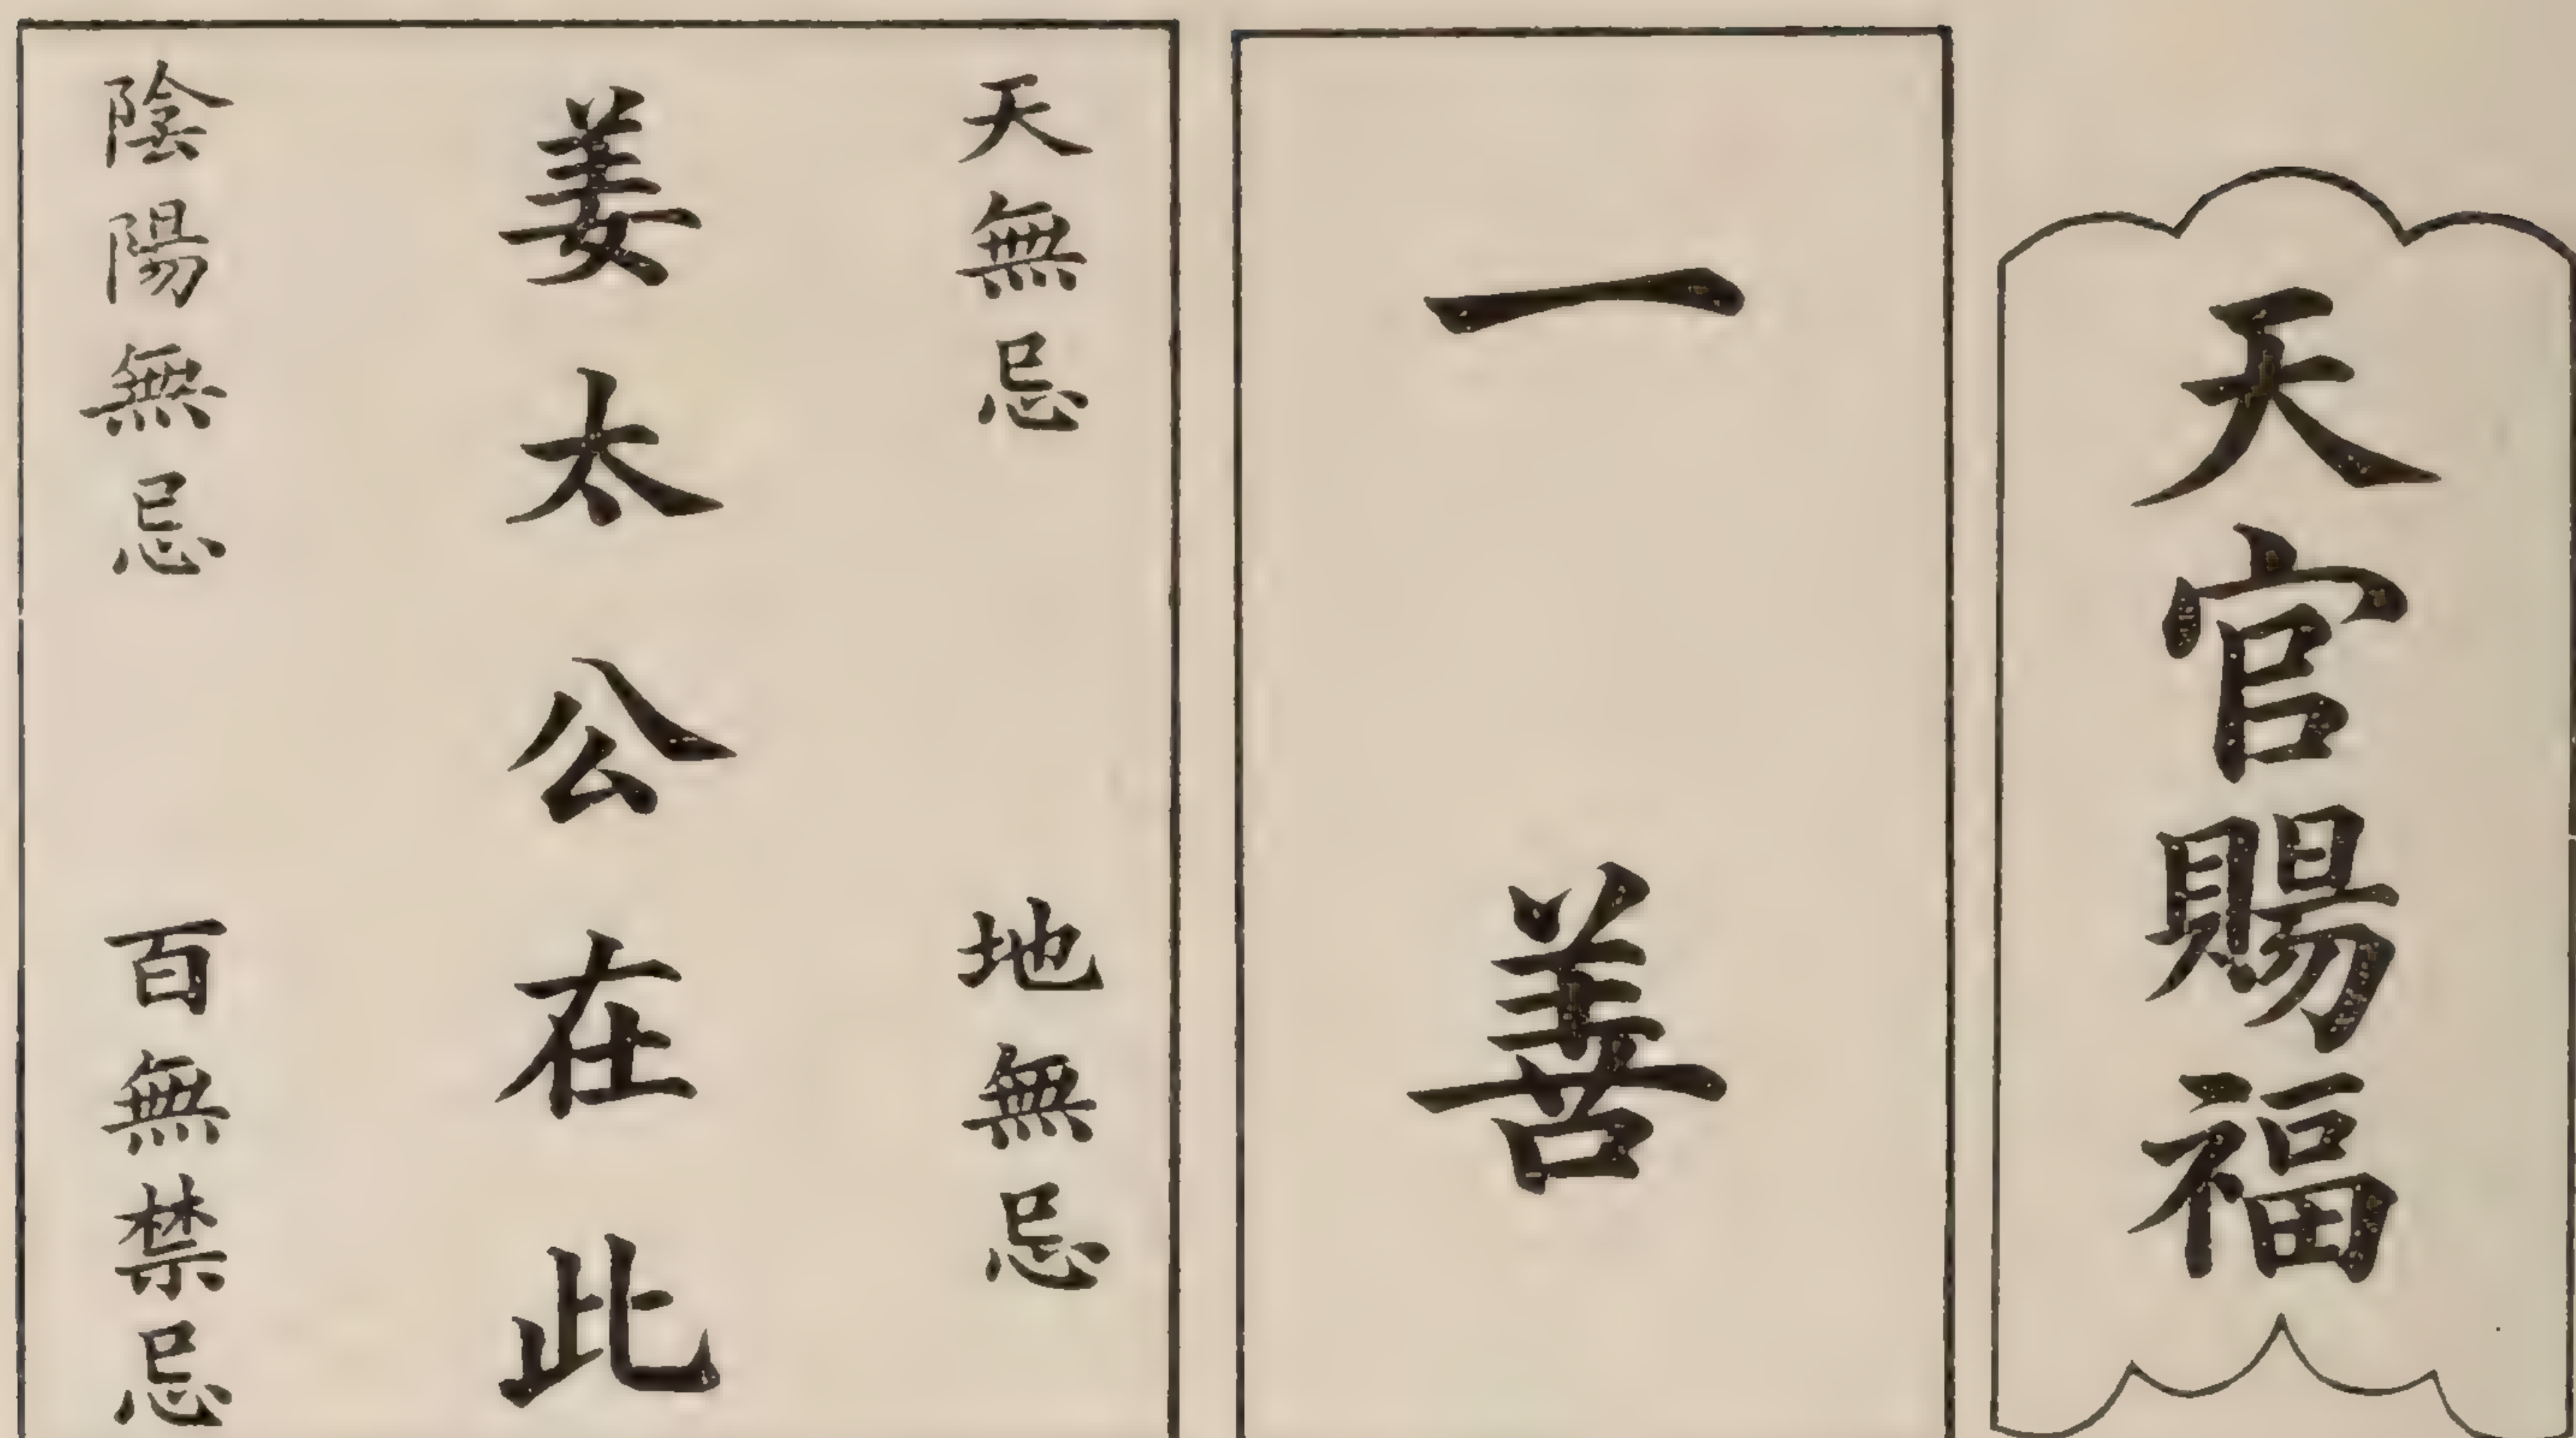 天官賜福
一善
天無忌 地無忌
姜太公在此
陰陽無忌 百無禁忌